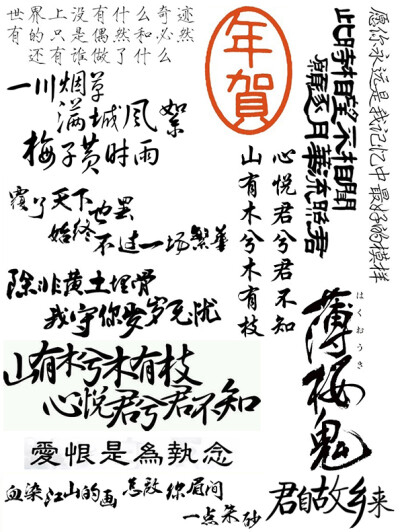 世界上没有什么奇迹
有的只是偶然和必然
还有谁做了什么
年賀
此時相望不相聞
願逐月華流照君
愿你永远是我记忆中最好的模样
一川烟草
满城风絮
梅子黄时雨
心悦君兮君不知
山有木兮木有枝
覆了天下也罢
始终不过一场繁华
除非黄土埋骨
我守你百岁无忧
山有木兮木有枝
心悦君兮君不知
はくおうき
薄桜鬼
愛恨是為執念
血染江山的画
怎敌你眉间
一点朱砂
君自故乡来